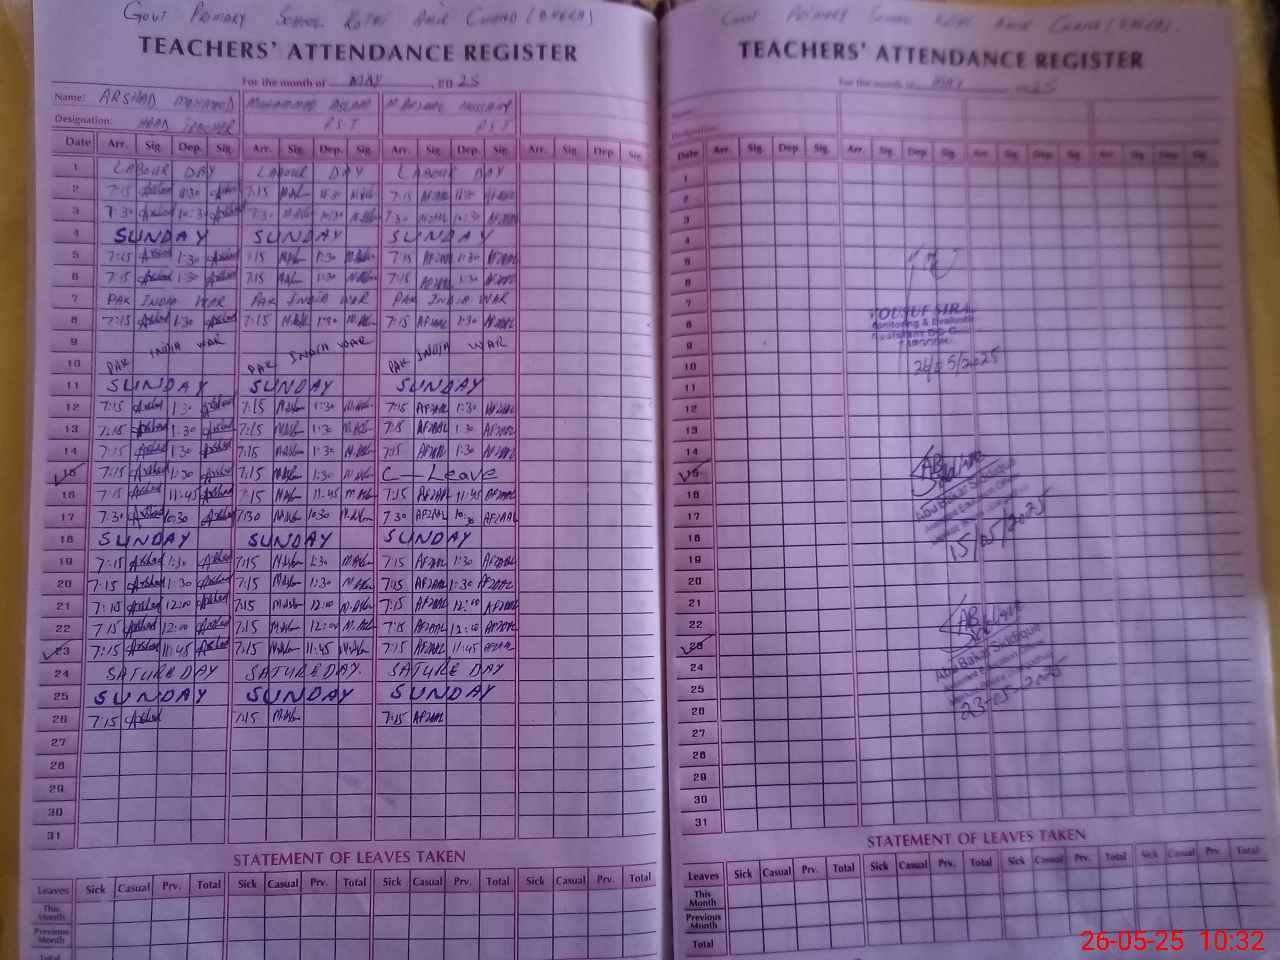 GOVT PRIMARY SCHOOL KOTHI AMIR CHAND (BHERA)
TEACHERS' ATTENDANCE REGISTER
For the month of MAY 2025
Name: ARSHAD MEHMOOD MUHAMMAD ASLAM M AFZAAL HUSSAIN
Designation: HEAD TEACHER P.S.T P.S.T
Date Arr. Sig. Dep. Sig. Arr. Sig. Dep. Sig. Arr. Sig. Dep. Sig. Arr. Sig. Dep. Sig.
1 LABOUR DAY LABOUR DAY LABOUR DAY
2 7:15 Arshad 11:30 Arshad 7:15 M.Aslam 11:30 M.Aslam 7:15 AFZAAL 11:30 AFZAAL
3 7:30 Arshad 10:30 Arshad 7:30 M.Aslam 10:30 M.Aslam 7:30 AFZAAL 10:30 AFZAAL
4 SUNDAY SUNDAY SUNDAY
5 7:15 Arshad 1:30 Arshad 7:15 M.Aslam 1:30 M.Aslam 7:15 AFZAAL 1:30 AFZAAL
6 7:15 Arshad 1:30 Arshad 7:15 M.Aslam 1:30 M.Aslam 7:15 AFZAAL 1:30 AFZAAL
7 PAK INDIA WAR PAK INDIA WAR PAK INDIA WAR
8 7:15 Arshad 1:30 Arshad 7:15 M.Aslam 1:30 M.Aslam 7:15 AFZAAL 1:30 AFZAAL
9
10 PAK INDIA WAR PAK INDIA WAR PAK INDIA WAR
11 SUNDAY SUNDAY SUNDAY
12 7:15 Arshad 1:30 Arshad 7:15 M.Aslam 1:30 M.Aslam 7:15 AFZAAL 1:30 AFZAAL
13 7:15 Arshad 1:30 Arshad 7:15 M.Aslam 1:30 M.Aslam 7:15 AFZAAL 1:30 AFZAAL
14 7:15 Arshad 1:30 Arshad 7:15 M.Aslam 1:30 M.Aslam 7:15 AFZAAL 1:30 AFZAAL
15 7:15 Arshad 1:30 Arshad 7:15 M.Aslam 1:30 M.Aslam C—Leave
16 7:15 Arshad 11:45 Arshad 7:15 M.Aslam 11:45 M.Aslam 7:15 AFZAAL 11:45 AFZAAL
17 7:30 Arshad 10:30 Arshad 7:30 M.Aslam 10:30 M.Aslam 7:30 AFZAAL 10:30 AFZAAL
18 SUNDAY SUNDAY SUNDAY
19 7:15 Arshad 1:30 Arshad 7:15 M.Aslam 1:30 M.Aslam 7:15 AFZAAL 1:30 AFZAAL
20 7:15 Arshad 1:30 Arshad 7:15 M.Aslam 1:30 M.Aslam 7:15 AFZAAL 1:30 AFZAAL
21 7:15 Arshad 12:00 Arshad 7:15 M.Aslam 12:00 M.Aslam 7:15 AFZAAL 12:00 AFZAAL
22 7:15 Arshad 12:00 Arshad 7:15 M.Aslam 12:00 M.Aslam 7:15 AFZAAL 12:00 AFZAAL
23 7:15 Arshad 11:45 Arshad 7:15 M.Aslam 11:45 M.Aslam 7:15 AFZAAL 11:45 AFZAAL
24 SATUREDAY SATUREDAY. SATUREDAY
25 SUNDAY SUNDAY SUNDAY
26 7:15 Arshad 7:15 M.Aslam 7:15 AFZAAL
27
28
29
30
31
STATEMENT OF LEAVES TAKEN
Leaves Sick Casual Prv. Total Sick Casual Prv. Total Sick Casual Prv. Total Sick Casual Prv. Total
This Month
Previous Month
Total
GOVT PRIMARY SCHOOL KOTHI AMIR CHAND (BHERA).
TEACHERS' ATTENDANCE REGISTER
For the month of MAY 2025
Name:
Designation:
Date Arr. Sig. Dep. Sig. Arr. Sig. Dep. Sig. Arr. Sig. Dep. Sig. Arr. Sig. Dep. Sig.
1
2
3
4
5
6
7
8 YOUSUF SIRAJ
Monitoring & Evaluation
9
10 26/05/2025
11
12
13
14
15
16 Abu Bakar Siddique
17
18 15/05/2025
19
20
21
22
23 Abu Bakar Siddique
24
25
26 23-05-2025
27
28
29
30
31
STATEMENT OF LEAVES TAKEN
Leaves Sick Casual Prv. Total Sick Casual Prv. Total Sick Casual Prv. Total Sick Casual Prv. Total
This Month
Previous Month
Total
26-05-25 10:32